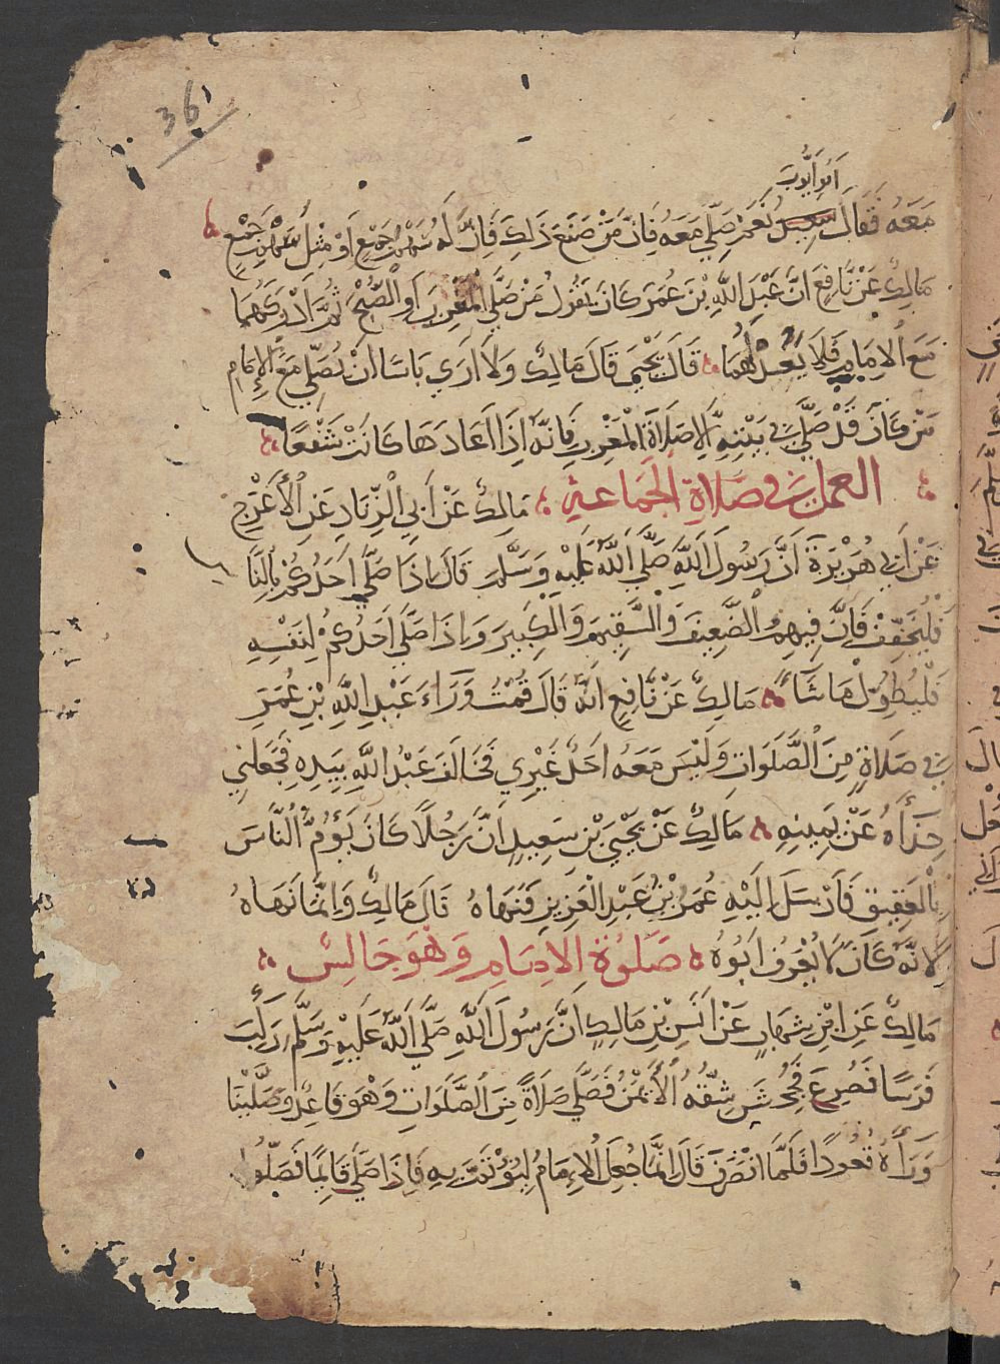 36
أَبُو أَيُّوبَ
مَعَهُ فَقَالَ سعيد نَعَمْ صَلِّ مَعَهُ فَإِنَّ مَنْ صَنَعَ ذَلِكَ فَإِنَّ لَهُ سَهْمَ جَمْعٍ أَوْ مِثْلَ سَهْمِ جَمْعٍ
مَالِكٌ عَنْ نَّافِعٍ أَنَّ عَبْدَ اللَّهِ بْنَ عُمَرَ كَانَ يَقُولُ مَنْ صَلَّى الْمَغْرِبَ أَوِ الصُّبْحَ ثُمَّ أَدْرَكَهُمَا
مَعَ الْإِمَامِ فَلَا يَعُدْ لَهُمَا قَالَ يَحْيَى قَالَ مَالِكٌ وَلَا أَرَى بَأْسًا أَنْ يُصَلِّيَ مَعَ الْإِمَامِ
مَنْ كَانَ قَدْ صَلَّى فِي بَيْتِهِ إِلَّا صَلَاةَ الْمَغْرِبِ فَإِنَّهُ إِذَا أَعَادَهَا كَانَتْ شَفْعًا
العمل في صَلَاةِ الْجَمَاعَةِ مَالِكٌ عَنْ أَبِي الزِّنَادِ عَنِ الْأَعْرَجِ
عَنْ أَبِي هُرَيْرَةَ أَنَّ رَسُولَ اللَّهِ صَلَّى اللَّهُ عَلَيْهِ وَسَلَّمَ قَالَ إِذَا صَلَّى أَحَدُكُمْ بِالنَّاسِ
فَلْيُخَفِّفْ فَإِنَّ فِيهِمُ الضَّعِيفَ وَالسَّقِيمَ وَالْكَبِيرَ وَإِذَا صَلَّى أَحَدُكُمْ لِنَفْسِهِ
فَلْيُطَوِّلْ مَا شَاءَ مَالِكٌ عَنْ نَّافِعٍ أَنَّهُ قَالَ قُمْتُ وَرَاءَ عَبْدِ اللَّهِ بْنِ عُمَرَ
فِي صَلَاةٍ مِنَ الصَّلَوَاتِ وَلَيْسَ مَعَهُ أَحَدٌ غَيْرِي فَخَالَفَ عَبْدُ اللَّهِ بِيَدِهِ فَجَعَلَنِي
حِذَاءَهُ عَنْ يَمِينِهِ مَالِكٌ عَنْ يَحْيَى بْنِ سَعِيدٍ أَنَّ رَجُلًا كَانَ يَؤُمُّ النَّاسَ
بِالْعَقِيقِ فَأَرْسَلَ إِلَيْهِ عُمَرُ بْنُ عَبْدِ الْعَزِيزِ فَنَهَاهُ قَالَ مَالِكٌ وَإِنَّمَا نَهَاهُ
لِأَنَّهُ كَانَ لَا يُعْرَفُ أَبُوهُ صَلَوةُ الْإِمَامِ وَهْوَ جَالِسٌ
مَالِكٌ عَنِ ابْنِ شِهَابٍ عَنْ أَنَسِ بْنِ مَالِكٍ أَنَّ رَسُولَ اللَّهِ صَلَّى اللَّهُ عَلَيْهِ وَسَلَّمَ رَكِبَ
فَرَسًا فَصُرِعَ فَجُحِشَ شِقُّهُ الْأَيْمَنُ فَصَلَّى صَلَاةً مِنَ الصَّلَوَاتِ وَهْوَ قَاعِدٌ وَصَلَّيْنَا
وَرَاءَهُ قُعُودًا فَلَمَّا انْصَرَفَ قَالَ إِنَّمَا جُعِلَ الْإِمَامُ لِيُؤْتَمَّ بِهِ فَإِذَا صَلَّى قَائِمًا فَصَلُّوا